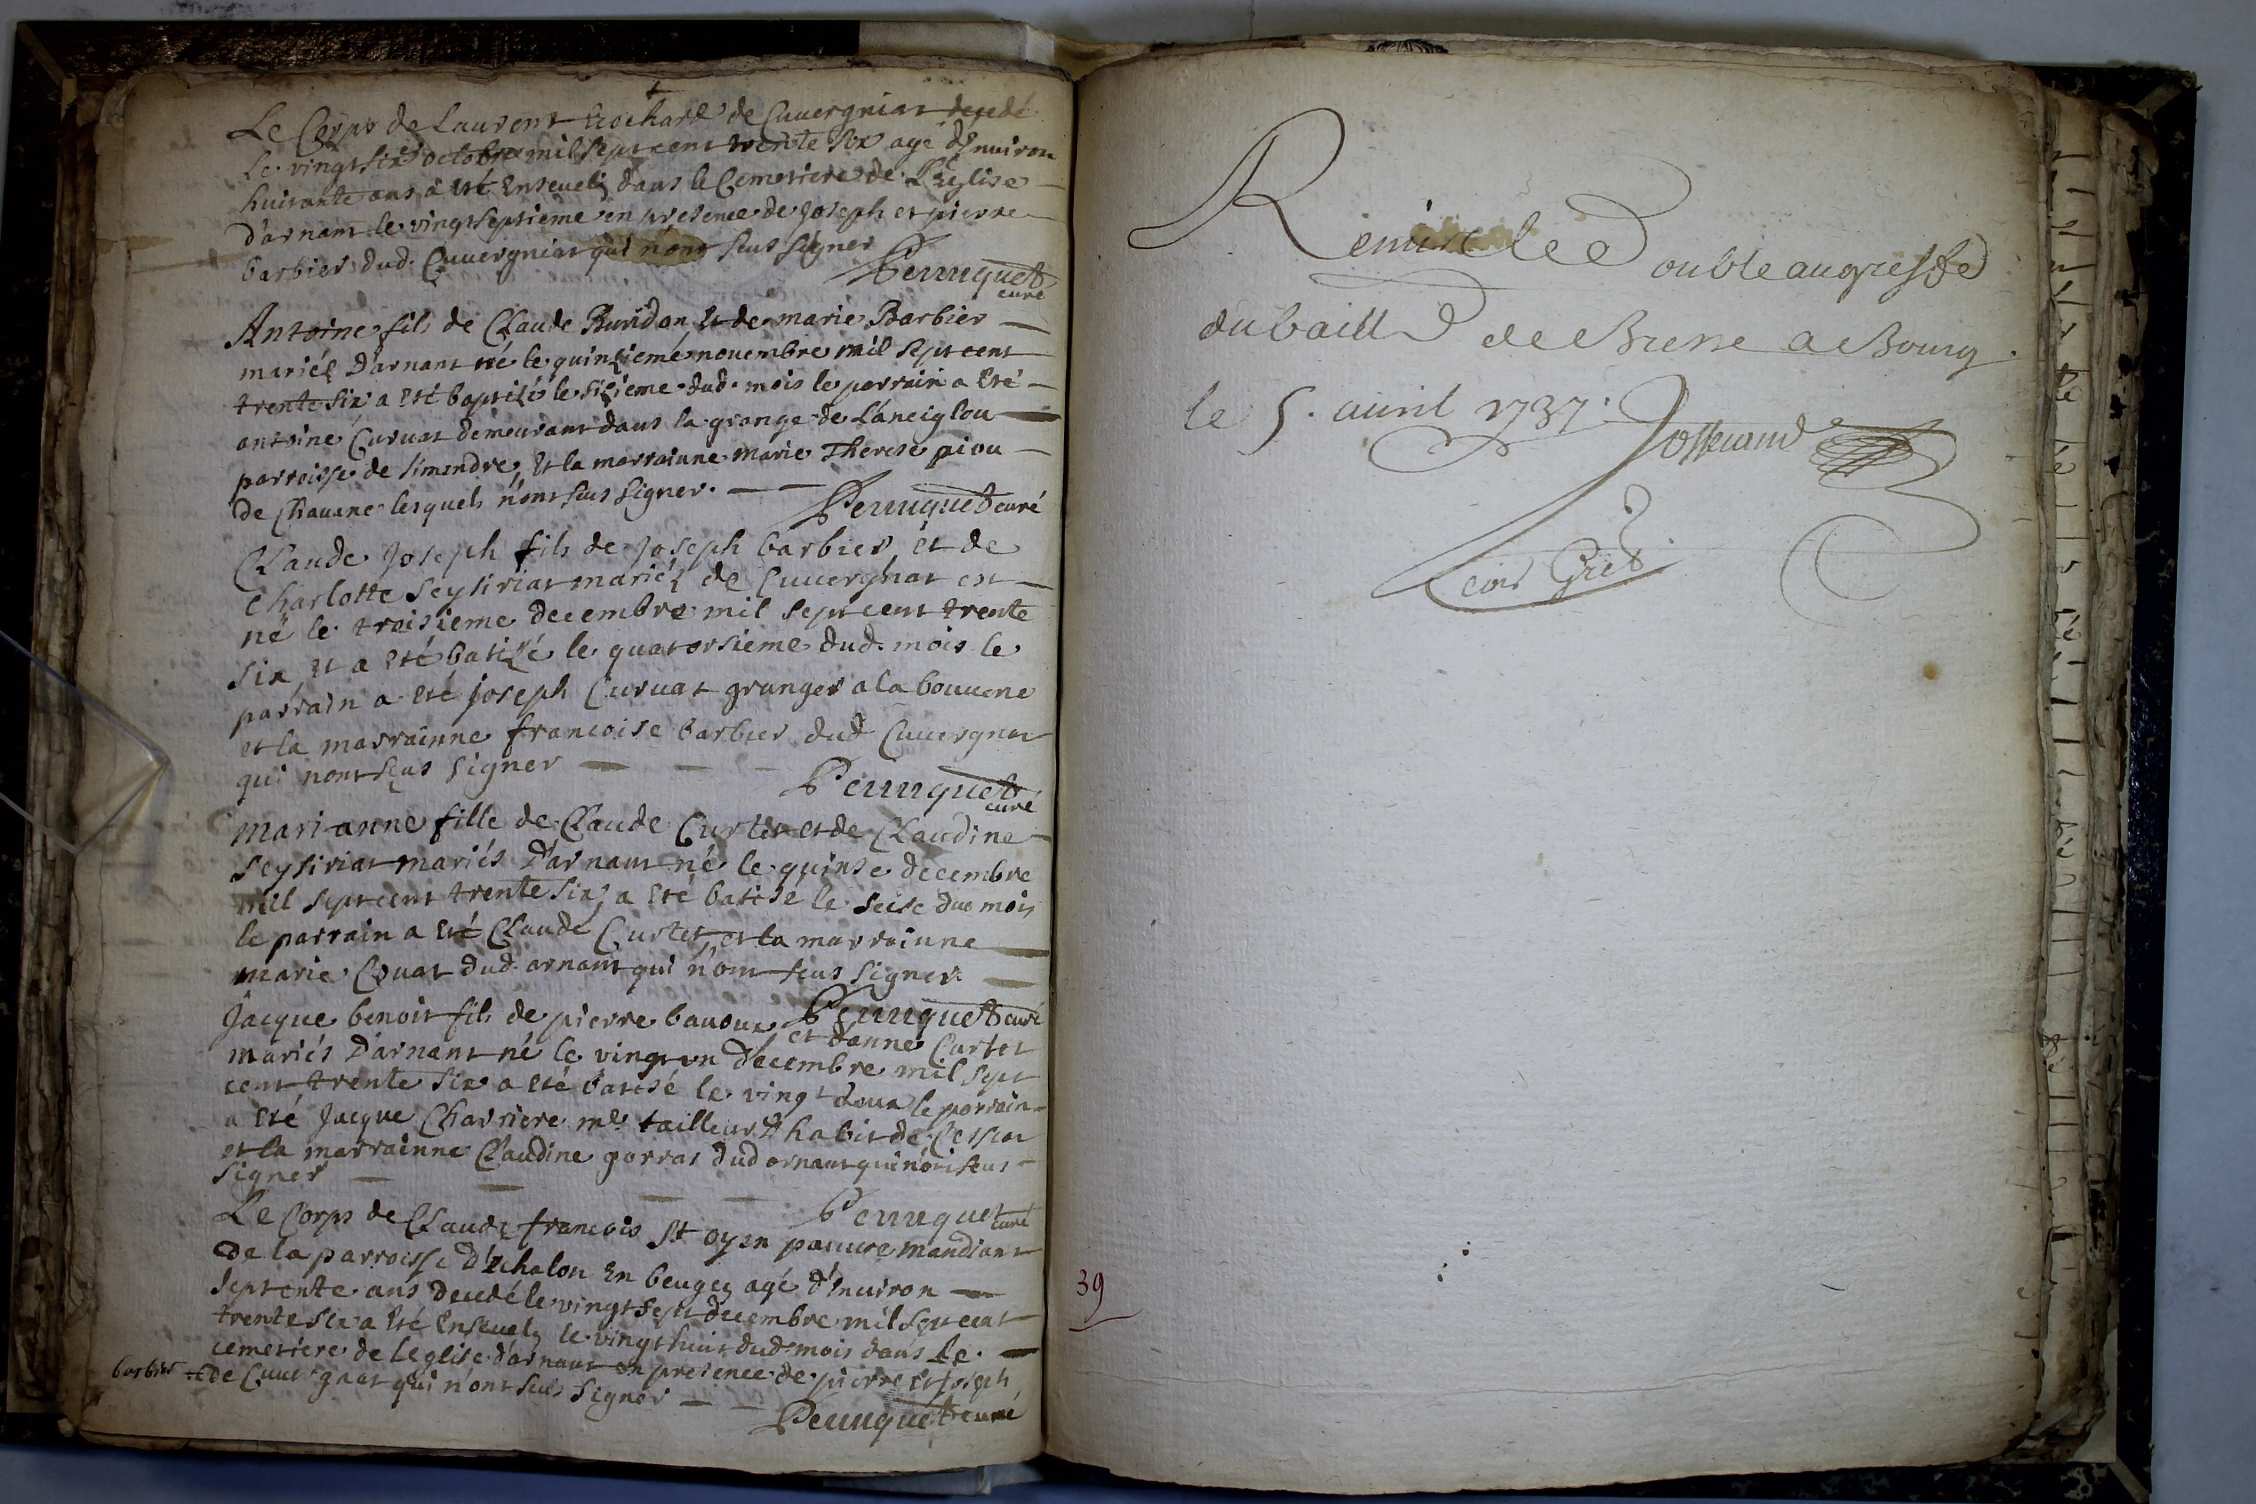 Le Corps de Laurent Rochard de Cuuergniat decedé
Le vingt six octobre mil sept cent trente six agé d'enuiron
huitante ans a Eté Enseueli dans le Cemetiere de L'Eglise
d'arnant le vingt septieme en presence de Joseph et pierre
barbier dud. Cuuergniat qui n'ont sçus signer
Perruquet
curé
Antoine fils de Claude Buridon Et de marie Barbier
mariés d'arnant né le quinzieme novembre mil sept cent
trente six a Eté baptisé le sizieme dud. mois le parrain a Eté
antoine Curuat demeurant dans la grange de Lanciglou
parroisse de simandre, Et la marrainne marie Therese piou
de Chauane lesquels n'ont sçus signer.
Perruquet curé
Claude Joseph fils de Joseph barbier, et de
Charlotte Seysiriat mariés de Cuuergnat est
né le troisieme decembre mil sept cent trente
six, et a eté batizé le quatorsieme dud. mois le
parrain a Eté joseph Curuat granger a la bouuene
et la marrainne francoise barbier dud Cuuergnat
qui n'ont sçus signer
Perruquet
curé
Marianne fille de Claude Curtet et de Claudine
Seysiriat mariés d'arnant né le quinse decembre
mil sept cent trente six, a Eté batisé le seise due mois
le parrain a Eté Claude Curtet, et la marrainne
marie Couat dud. arnant qui n'ont sçus signer.
Perruquet curé
Jacque benoit fils de pierre bauoux et danne Curtet
mariés d'arnant né le vingt un decembre mil sept
cent trente six a eté batisé le vingt deux le parrain
a Eté Jacque Charriere me. tailleur d'habit de
et la marrainne Claudine gorras dud arnant qui n'ont sçus
signer
Perruquet
curé
Le Corps de Claude francois St oyen pauure mandiant
de la parroisse d'Echalon En beugey agé d'enuiron
septente ans decedé le vingt sept decembre mil sept cent
trente six a Eté Enseuely le vingt huit dud. mois dans Le
cemetiere de leglise d'arnant en presence de pierre et Joseph
barbier de Cuuergnat qui n'ont sçus signer
Perruquet curé
Remis le Double au greffe
du baill de Bresse a Bourg.
le 5. auril 1737.
Josserand
Com Gref
39